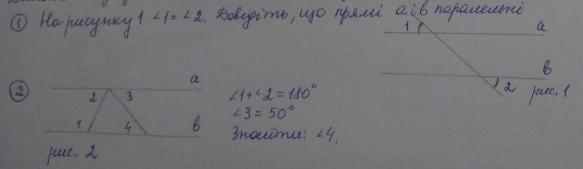 ① На рисунку 1 ∠1=∠2. Доведіть, що прямі а і в паралельні
1
a
в
2
рис. 1
②
a
2 3
1 4
в
рис. 2
∠1+∠2=180°
∠3=50°
Знайти: ∠4.